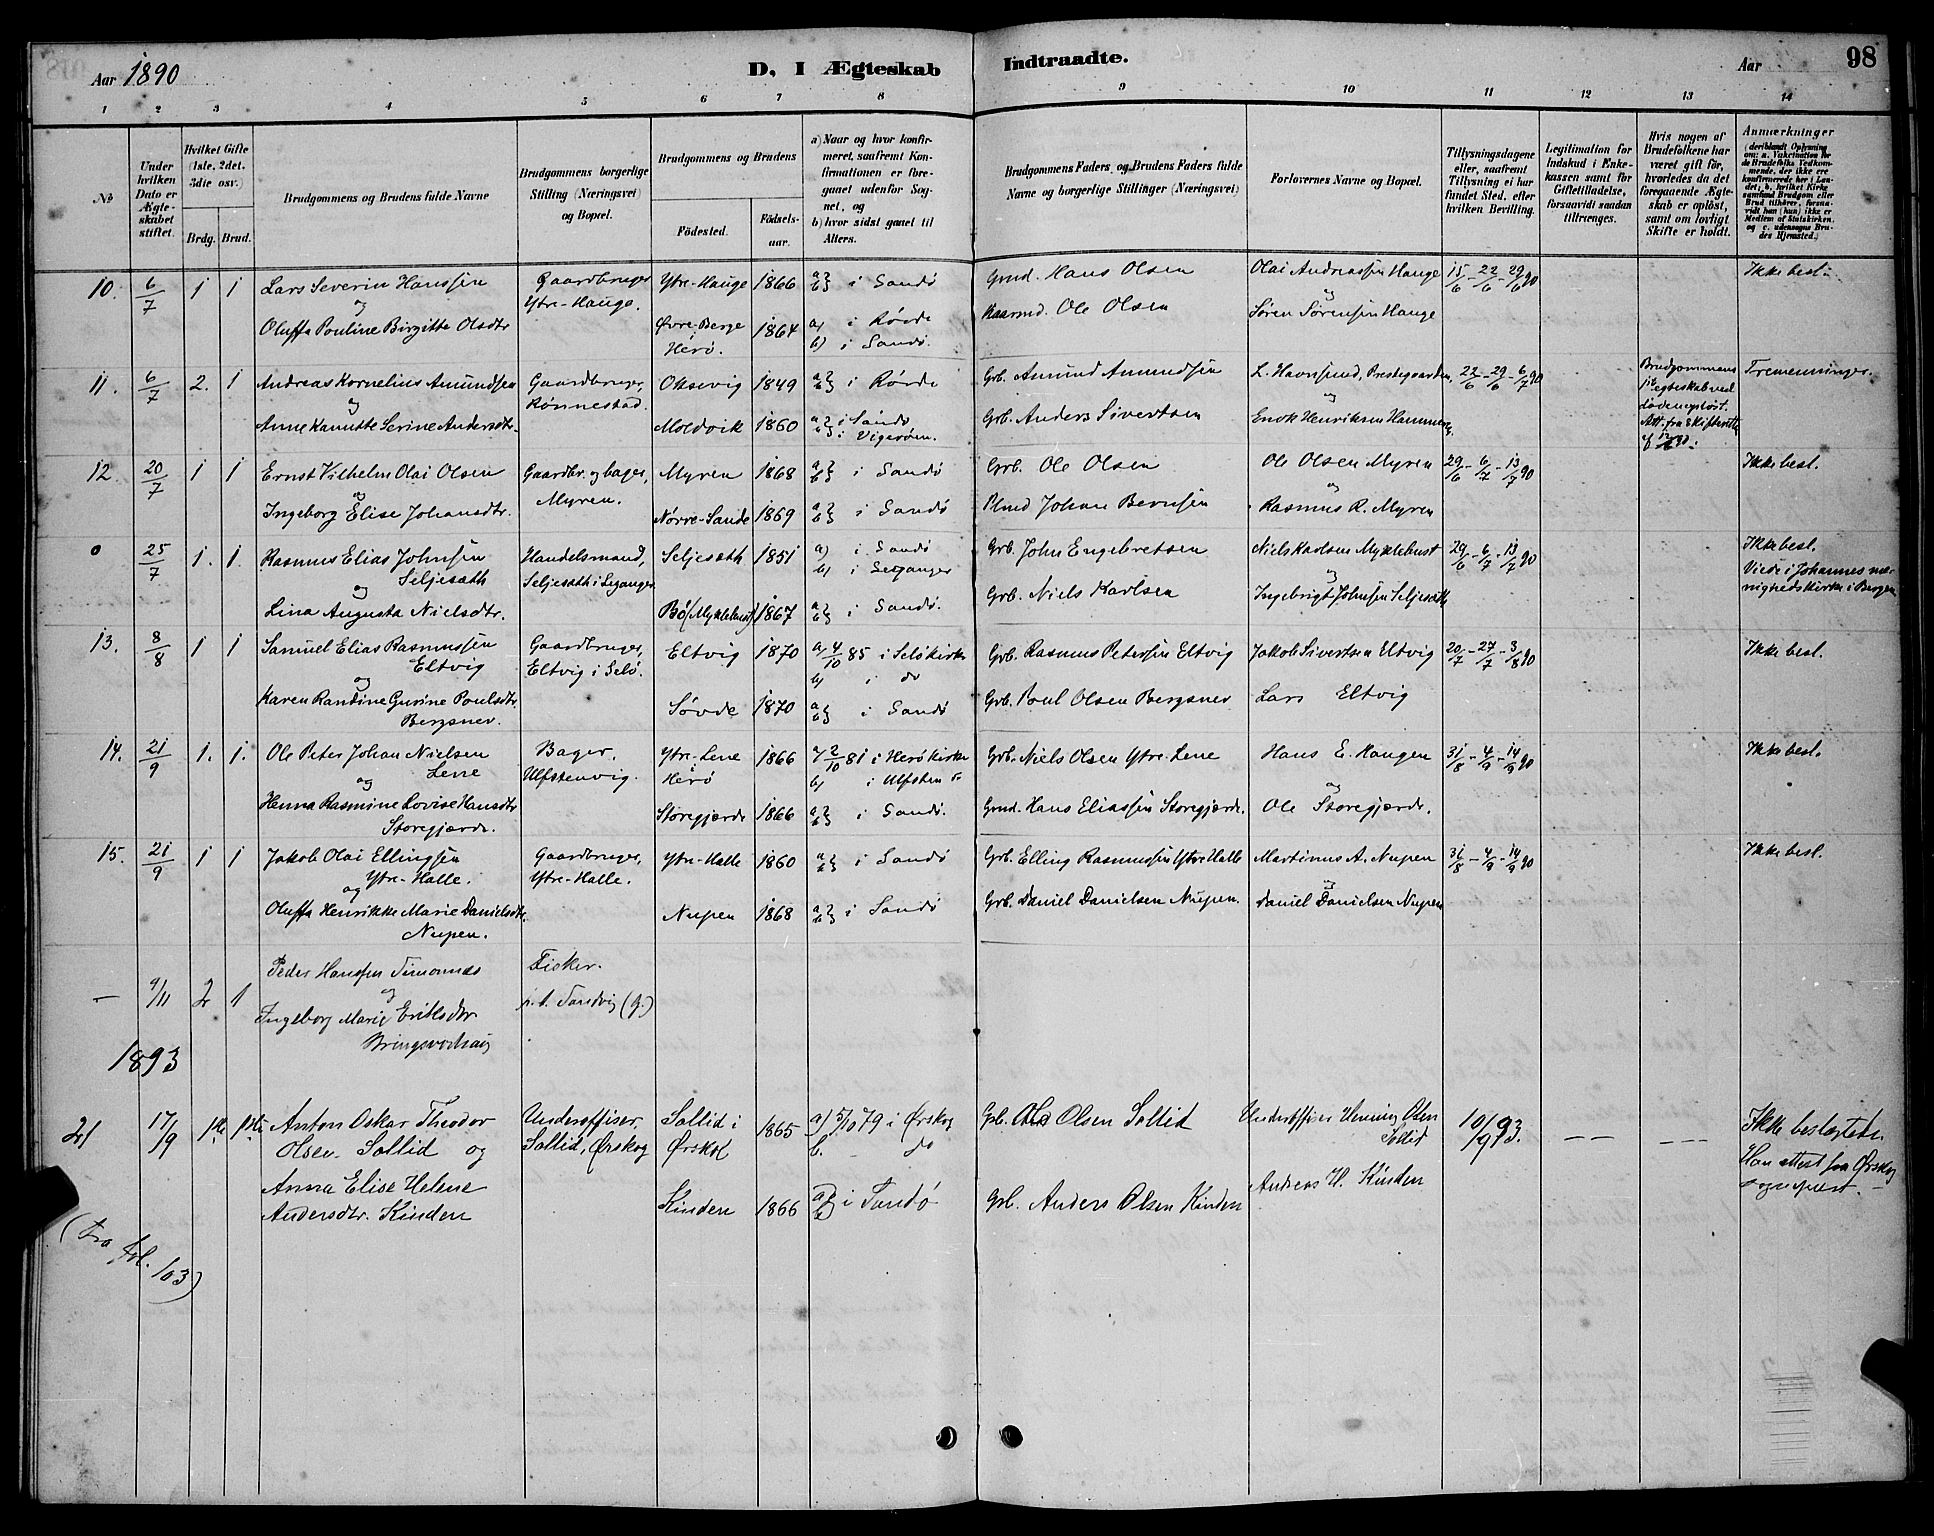 Aar 1890
D, I Ægteskab Indtraadte.
Aar
98
1 2 3 4 5 6 7 8 9 10 11 12 13 14
№
Under hvilken Dato er Ægteskabet stiftet.
Hvilket Gifte (1ste, 2det, 3die osv.)
Brdg. Brud.
Brudgommens og Brudens fulde Navne
Brudgommens borgerlige Stilling (Næringsvei) og Bopæl.
Brudgommens og Brudens
Fødested.
Fødselsaar.
a) Naar og hvor konfirmeret, saafremt Konfirmationen er foregaaet udenfor Sognet, og
b) hvor sidst gaaet til Alters.
Brudgommens Faders, og Brudens Faders fulde Navne og borgerlige Stillinger (Næringsvei)
Forlovernes Navne og Bopæl.
Tillysningsdagene eller, saafremt Tillysning ei har fundet Sted, efter hvilken Bevilling.
Legitimation for Indskud i Enkekassen samt for Giftetilladelse, forsaavidt saadan tiltrænges.
Hvis nogen af Brudefolkene har været gift før, hvorledes da det foregaaende Ægteskab er opløst, samt om lovligt Skifte er holdt.
Anmærkninger (deriblandt Oplysning om: a. Vakcination for de Brudefolks Vedkommende, der ikke ere konfirmerede her i Landet; b. hvilket Kirkesamfund Brudgom eller Brud tilhører, forsaavidt han (hun) ikke er Medlem af Statskirken, og c. udensogns Brudes Hjemsted.)
10. 6/7 1 1 Lars Severin Hanssen Gaardbruger Ytre-Hauge 1866 a b} i Sandø Gmd. Hans Olsen Olai Andreassen Hauge 15/6 - 22/6 - 29/6 90 Ikke besl.
og Ytre-Hauge. og
Oluffa Pouline Birgitte Olsdtr Øvre-Berge Herø. 1864 a) i Røvde b) i Sandø. Kaarmd. Ole Olsen Søren Sørensen Hauge
11. 6/7 2. 1 Andreas Kornelius Amundsen Gaardbruger, Oksevig 1849 a b} i Røvde Grb. Amund Amundsen L. Havnsund, Prestegaarden, 22/6 - 29/6 - 6/7 90 Brudgommens Tremenninger.
og Rønnestad. og 1ste egteskab ved
Anne Kanutte Serine Andersdtr. Moldvik 1860 i Sandø i Vigerøm. Grb. Anders Sivertsen Enok Henriksen Hammer døden opløst. Att. fra Skifteretten
12. 20/7 1 1 Ernst Vilhelm Olai Olsen Gaardbr. og bager, Myren 1868 a b} i Sandø Grb. Ole Olsen Ole Olsen Myren 29/6 - 6/7 - 13/7 90 Ikke besl.
og Myren. og
Ingeborg Elise Johansdtr. Nørre-Sande 1869 a b} i Sandø Johan Berntsen Rasmus R. Myren
0 25/7 1. 1. Rasmus Elias Johnsen Handelsmand, Seljesæth 1851 a) i Sandø Grb. John Engebretsen Niels Karlsen Myklebust 29/6 - 6/7 - 13/7 90 Ikke besl.
Seljesæth Seljesæth i Selganger b) i Selganger Viede i Johannes me-
og og nighedskirke i Bergen
Lina Augusta Nielsdtr. Bø (Myklebust) 1867 a b} i Sandø. Grb. Niels Karlsen Ingebrigt Johnsen Seljesæth
13. 8/8 1 1 Samuel Elias Rasmussen Gaardbruger, Eltvig 1870 a) 4/10 85 i Selø kirke Grb. Rasmus Petersen Eltvig Jakob Sivertsen Eltvig 20/7 - 27/7 - 3/8 90 Ikke besl.
Eltvig Eltvig i Selø. b) i do
og
Karen Rantine Gurine Poulsdtr. Søvde 1870 a b} i Sandø Grb. Poul Olsen Bergsnev Lars Eltvig
Bergsnev.
14. 21/9 1. 1. Ole Peter Johan Nielsen Bager, Ytre-Lene 1866 a) 2/10 81 i Herø kirke Grb. Niels Olsen Ytre Lene Hans E. Haugen 31/8 - 4/9 - 14/9 90 Ikke besl.
Lene Ulfstenvig. Herø b) i Ulfsten
og og
Henna Rasmine Lovise Hansdtr Storegjærde 1866 a b} i Sandø. Gmd. Hans Eliassen Storegjærde. Ole Storegjærde.
Storegjærde.
15. 21/9 1 1 Jakob Olai Ellingsen Gaardbruger, Ytre-Halle 1860 a b} i Sandø Grb. Elling Rasmussen Ytre Halle Martinus A. Nupen 31/8 - 4/9 - 14/9 90 Ikke besl.
Ytre-Halle. Ytre-Halle.
og og
Oluffa Henrikke Marie Danielsdtr. Nupen 1868 a b} i Sandø Grb. Daniel Danielsen Nupen. Daniel Danielsen Nupen
Nupen.
— 9/11 2 1 Peder Hanssen Timonnes Fisker.
og p.t. Sandvig (g.)
Ingeborg Marie Eriksdtr
1893
21 17/9 1ste 1ste Anton Oskar Theodor Underoffiser, Sollid i 1865 a) 5/10 79 i Ørskog Grb. Ole Olsen Sollid Underoffiser Henning Olsen 10/9 93. — — — — — Ikke beslegtede.
Olsen Sollid og Sollid, Ørskog Ørskog b. do Sollid Han attest fra Ørskog
Anna Elise Helene Kinden 1866 a b} i Sandø Grb. Anders Olsen Kinden Andreas H. Kinden sognepræst. —
Andersdtr. Kinden
(Fra fol. 103)